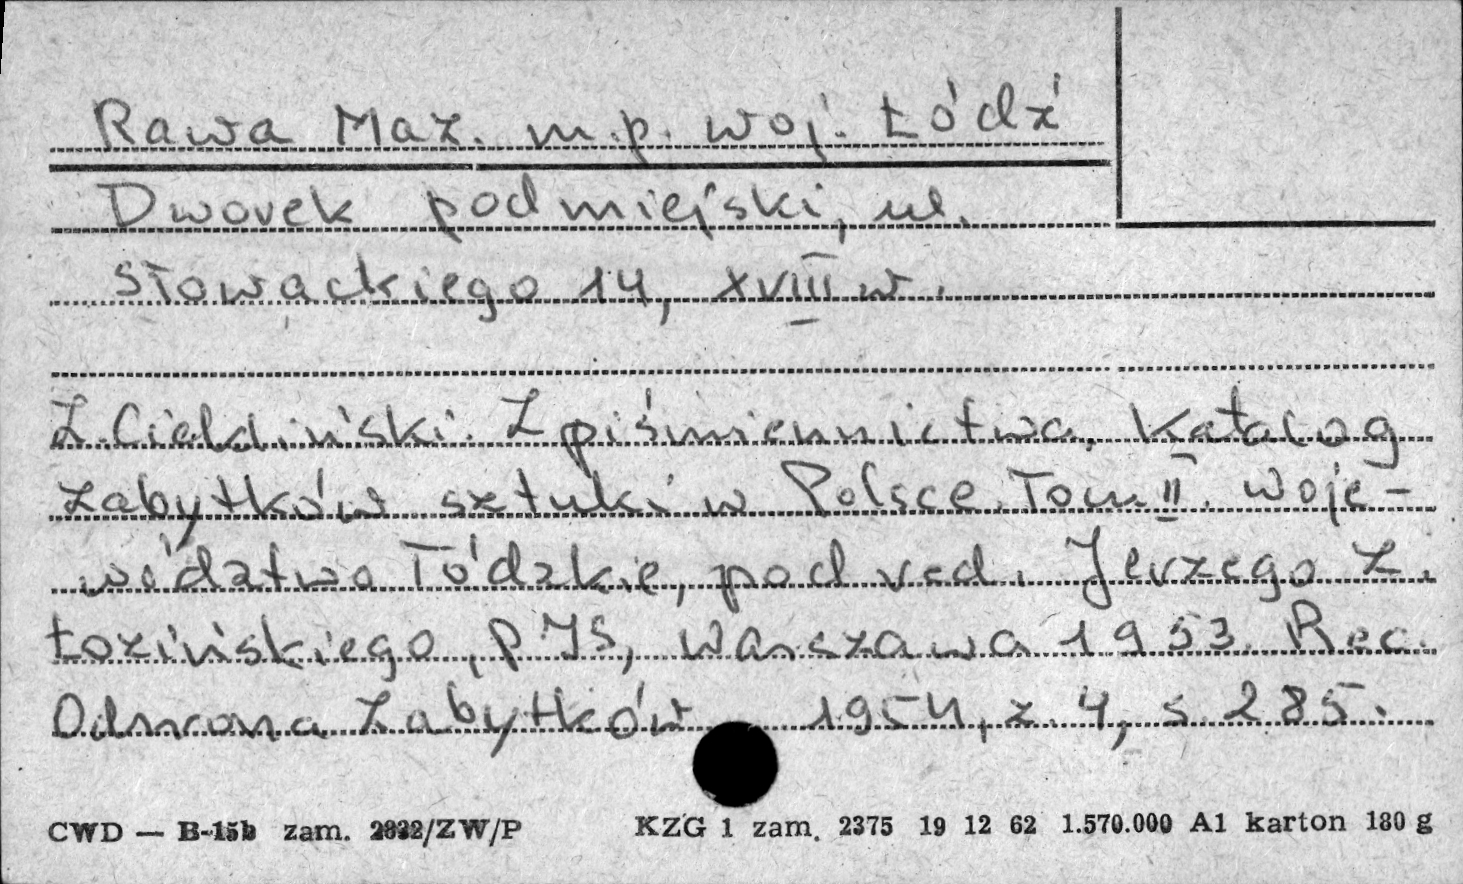 Rawa Maz. m.p. woj. Łódź
Dworek podmiejski, ul.
Słowackiego 14, XVIII w.
Z. Ciekliński. Z piśmiennictwa. Katalog
zabytków sztuki w Polsce. Tom II. Woje-
wództwo łódzkie, pod red. Jerzego Z.
Łozińskiego, PIS, Warszawa 1953. Rec.
Ochrona Zabytków 1954, z. 4, s 285.
CWD — B-15b zam. 2932/ZW/P KZG 1 zam. 2375 19 12 62 1.570.000 A1 karton 180 g